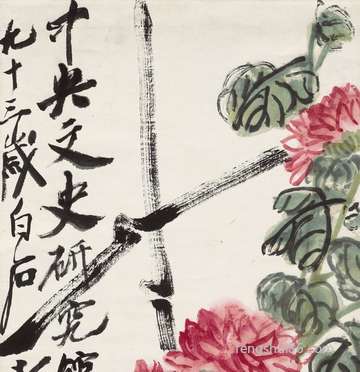 中央文史研究館
九十三歲白石